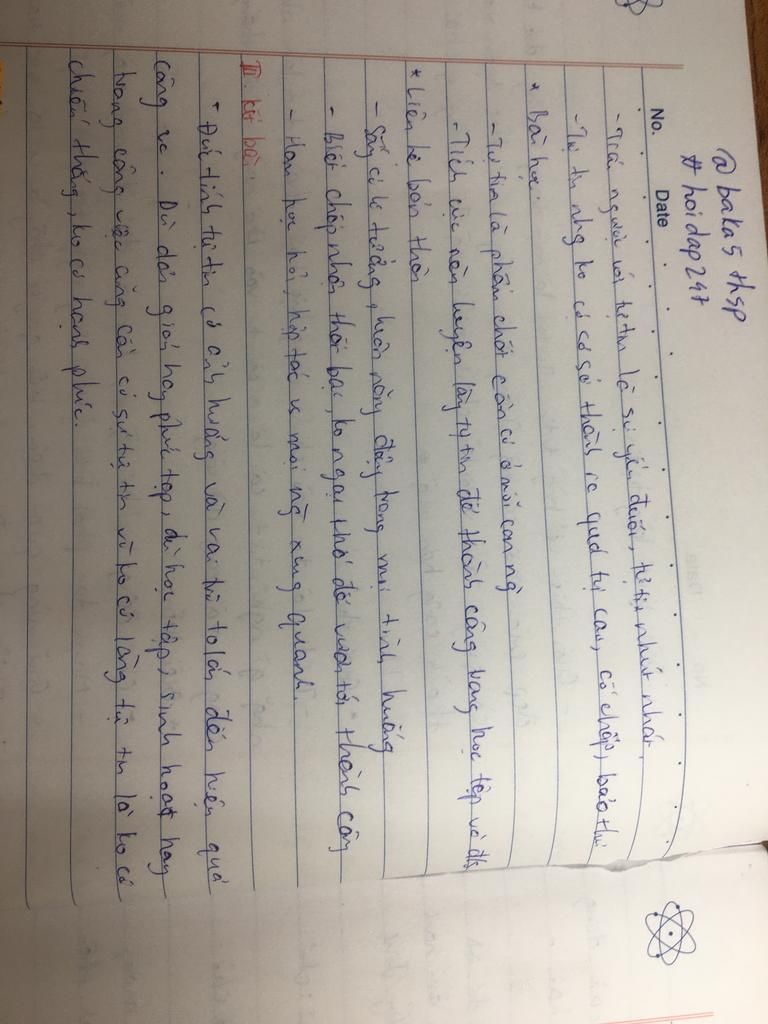 @baka5 thsp
#hoidap247
No. Date
- Trái ngược với tự tin là sự yếu đuối, tự ti, nhút nhát.
- Tự tin nhg ko có cơ sở thành ra quá tự cao, cố chấp, bảo thủ
* Bài học:
- Tự tin là phẩm chất cần có ở mỗi con ng
- Tích cực rèn luyện lấy tự tin để thành công trong học tập và đs
* Liên hệ bản thân
- Sống có lí tưởng, hiên ngang trong mọi tình huống
- Biết chấp nhận thất bại, ko ngại khó để vươn tới thành công
- Ham học hỏi, hợp tác vs mọi ng xung quanh.
III. Kết bài:
* Đức tính tự tin có ảnh hưởng và vai trò to lớn đến hiệu quả
công vc. Dù đơn giản hay phức tạp, dù học tập, sinh hoạt hay
trong công việc cũng cần có sự tự tin vì ko có lòng tự tin là ko có
chiến thắng, ko có hạnh phúc.